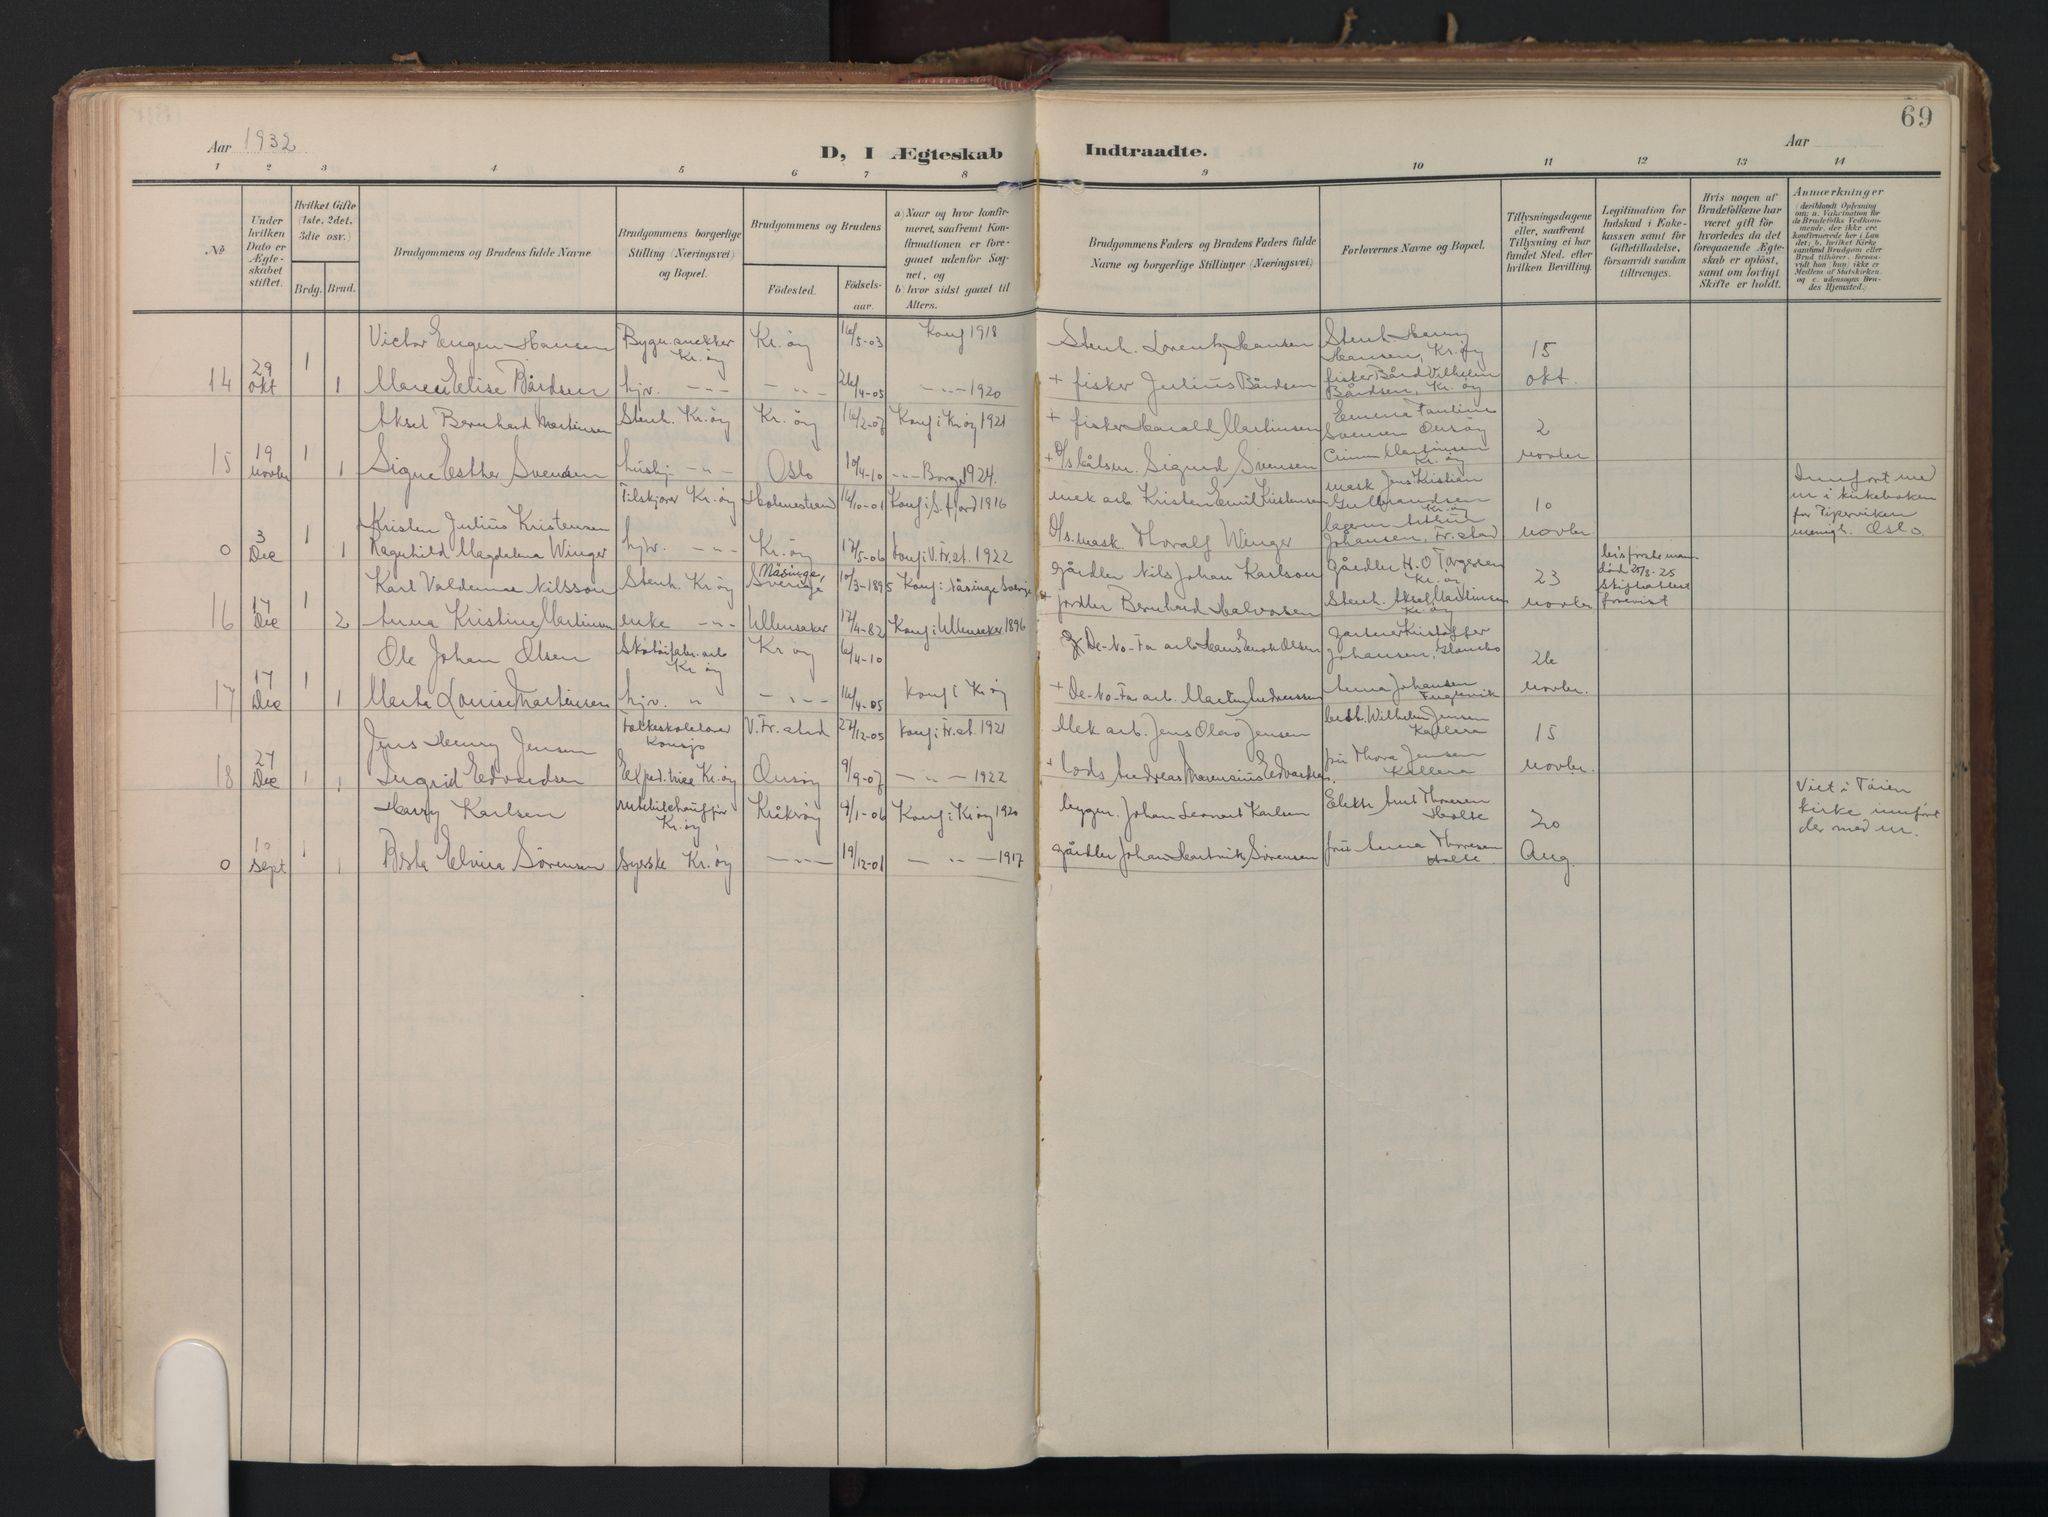 Aar 1932
D, I Ægteskab Indtraadte.
69
Aar
1 2 3 4 5 6 7 8 9 10 11 12 13 14
No
Under hvilken Dato er Ægteskabet stiftet.
Hvilket Gifte (1ste, 2det, 3die osv.)
Brdg. Brud.
Brudgommens og Brudens fulde Navne
Brudgommens borgerlige Stilling (Næringsvei) og Bopæl.
Brudgommens og Brudens
Födested.
Födselsaar.
a) Naar og hvor konfirmeret, saafremt Konfirmationen er foregaaet udenfor Sognet, og
b) hvor sidst gaaet til Alters.
Brudgommens Faders og Brudens Faders fulde Navne og borgerlige Stillinger (Næringsvei)
Forlovernes Navne og Bopæl.
Tillysningsdagene eller, saafremt Tillysning ei har fundet Sted, efter hvilken Bevilling.
Legitimation for Indskud i Enkekassen samt for Giftetilladelse, forsaavidt saadan tiltrænges.
Hvis nogen af Brudefolkene har været gift för hvorledes da det foregaaende Ægteskab er oplöst, samt om lovligt Skifte er holdt.
Anmærkninger
Victor Eugen Hansen Bygn.snekker Kr.øy Kr. øy 16/5-03 Konf 1918 Stenh. Lorentz Hansen Stenh. Harry Hansen, Kr.øy 15
14 29 okt 1 1 Maren Elise Bårdsen hjv. -"- -"- 26/4-05 -"- 1920 + fisker Julius Bårdsen fisker Bård Vilhelm Bårdsen, Kr. øy okt.
Aksel Bernhard Martinsen Stenh. Kr.øy Kr. øy 16/2-07 Konf i Kr.øy 1921 + fisker Harald Martinsen Emma Pauline Svensen Onsøy 2
15 19 novbr 1 1 Signe Esther Svensen hushj. -"- Oslo 10/4-10 -"- Borge 1924. Sigurd Svensen Martinsen Kr. øy novbr
Kristen Julius Kristensen Kr. øy Holmestrand 16/10-01 Konf i S. fjord 1916 mek arb Kristen Emil Kristensen mask Jens Kristian Gulbrandsen Kr.øy 10
0 3 Dec 1 1 Ragnhild Magdalena Winger hjv. -"- Kr. øy 17/5-06 Konf i V. Fr.st. 1922 Thoralf Winger Johansen, Fr.stad novber
Innført med nr i kirkeboken for Pipervikens menigh. Oslo
Karl Valdemar Nilsson Stenh. Kr.øy Näsinge, Sverige 10/3-1895 Konf i Näsinge Sverige gårdbr Nils Johan Karlson gårdbr H. O Torgersen Kr.øy 23
16 17 Dec 1 2 Anna Kristine Martinsen enke -"- Ullensaker 17/4-82 Konf i Ullensaker 1896 + jordbr Bernhard Halvorsen Stenh. Aksel Martinsen Kr. øy novber
død 25/3-25 Skifteattest forevist
Ole Johan Olsen Skotøifabr. arb Kr.øy Kr øy 6/4-10 De-No-Fa arb Hans Olsen gartner Kristoffer Johansen, Glombo 26
17 17 Dec 1 1 Marta Louise Martinsen hjv. " -"- 16/4-05 Konf i Kr.øy + De-No-Fa arb. Martin Andreassen Anna Johansen Fuglevik novber.
Jens Henry Jensen Folkeskolelærer V. Fr.stad 27/12-05 Konf i Fr.st. 1921 Mek arb. Jens Olaō Jensen Wilhelm Jensen Kallera 15
18 27 Dec 1 1 Ingrid Edvardsen Expeditrise Kr.øy Onsøy 9/9-07 -"- 1922 + lods Andreas Marensius Edvardsen fru Thora Jensen Kallera novber.
Harry Karlsen Kr.øy Kråkrøy 4/1-06 Konf i Kr.øy 1920 bygm. Johan Leonart Karlsen Thoresen Holte 20
0 10 sept 1 1 Elvira Sørensen Syerske Kr. øy -"- 19/12-01 -"- 1917 gårdbr Johan Hartvik Sørensen fru Anna Thoresen Holte Aug.
Viet i Tøien kirke innført der med nr.